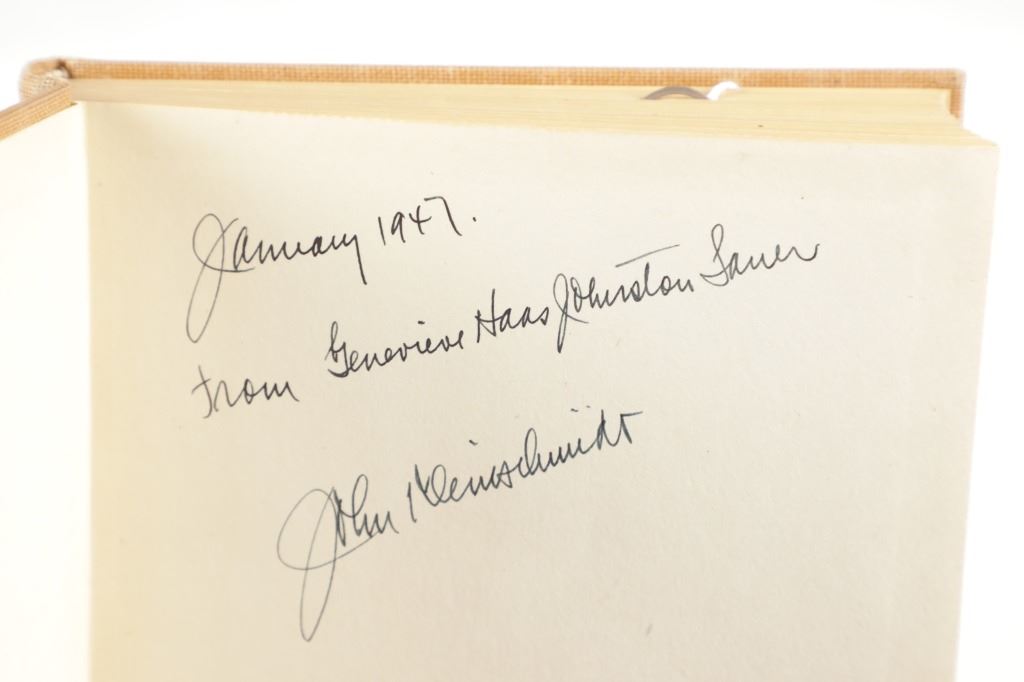 January 1947.
From Genevieve Haas Johnston
John Kleinschmidt